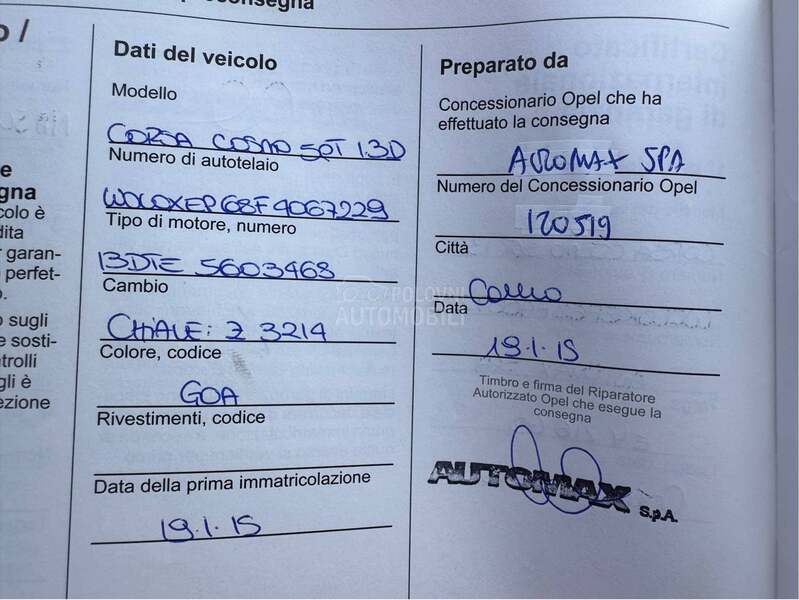 consegna
o /
e
gna
colo è
dita
r garan-
perfet-
o.
o sugli
e sosti-
trolli
gli è
ezione
Dati del veicolo
Modello
CORSA COSMO 5PT 1.3D
Numero di autotelaio
W0L0XEP68F4067229
Tipo di motore, numero
13DTE 5603468
Cambio
CHIAVE: Z 3214
Colore, codice
GOA
Rivestimenti, codice
Data della prima immatricolazione
19.1.15
Preparato da
Concessionario Opel che ha
effettuato la consegna
AUTOMAX SPA
Numero del Concessionario Opel
120519
Città
Data
19.1.15
Timbro e firma del Riparatore
Autorizzato Opel che esegue la
consegna
AUTOMAX S.p.A.
POLOVNI
AUTOMOBILI